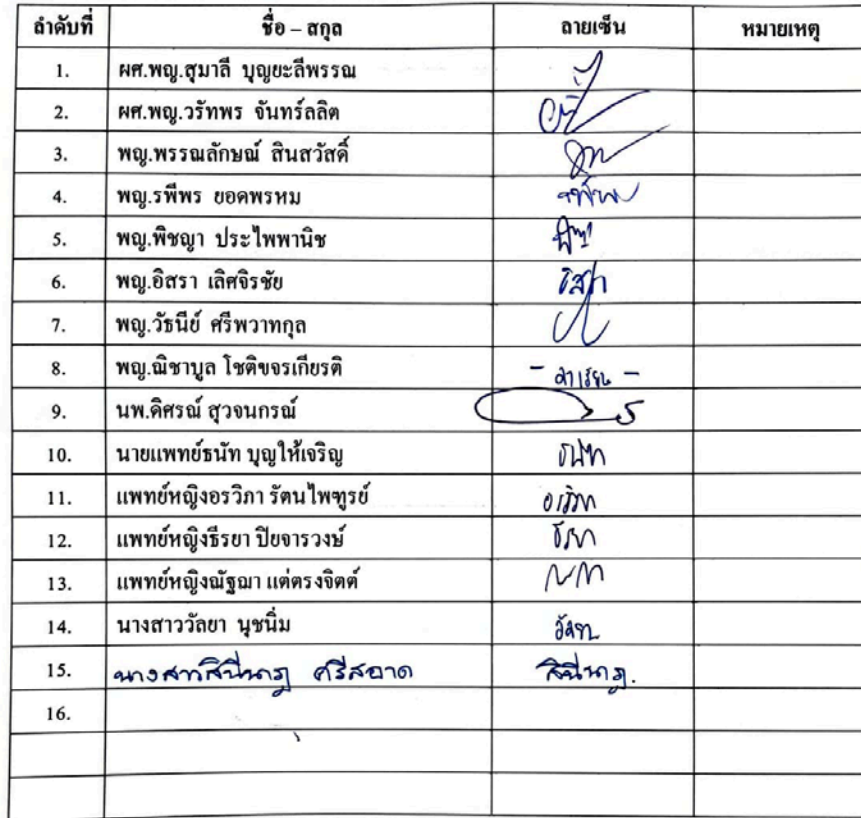 ลำดับที่ ชื่อ – สกุล ลายเซ็น หมายเหตุ
1. ผศ.พญ.สุมาลี บุญยะลีพรรณ
2. ผศ.พญ.วรัทพร จันทร์ลลิต
3. พญ.พรรณลักษณ์ สินสวัสดิ์
4. พญ.รพีพร ยอดพรหม
5. พญ.พิชญา ประไพพานิช
6. พญ.อิสรา เลิศจิรชัย อิสรา
7. พญ.วัธนีย์ ศรีพวาทกุล
8. พญ.ณิชาบูล โชติขจรเกียรติ - ลาเรียน -
9. นพ.ดิศรณ์ สุวจนกรณ์
10. นายแพทย์ธนัท บุญให้เจริญ ธนัท
11. แพทย์หญิงอรวิภา รัตนไพฑูรย์ อรวิภา
12. แพทย์หญิงธีรยา ปิยจารวงษ์ ธีรยา
13. แพทย์หญิงณัฐฌา แต่ตรงจิตต์
14. นางสาววัลยา นุชนิ่ม วัลยา
15. นางสาวสินีนาฎ ศรีสอาด สินีนาฎ.
16.